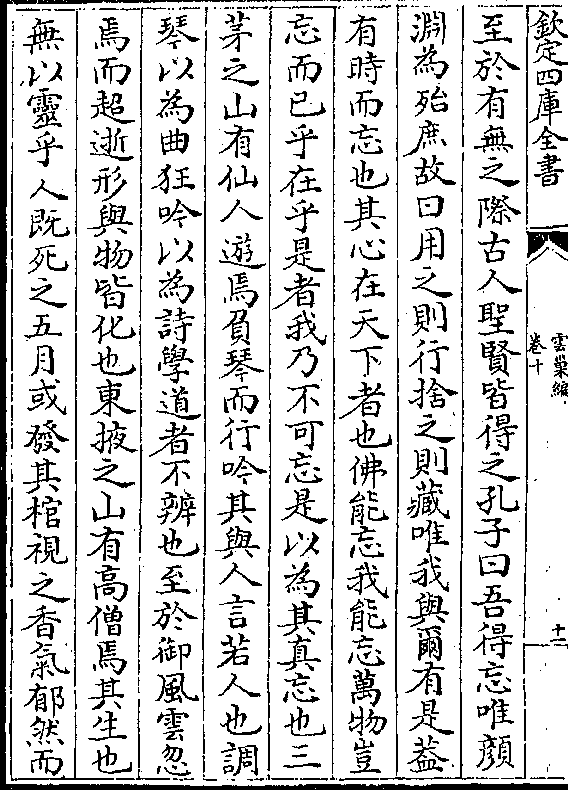 欽定四庫全書
雲巢編
卷十
十一
至於有無之際古人聖賢皆得之孔子曰吾得忘唯顔
淵為殆庶故曰用之則行捨之則藏唯我與爾有是葢
有時而忘也其心在天下者也佛能忘我能忘萬物豈
忘而已乎在乎是者我乃不可忘是以為其真忘也三
茅之山有仙人遊焉負琴而行吟其與人言若人也調
琴以為曲狂吟以為詩學道者不辨也至於御風雲忽
焉而超逝形與物皆化也東掖之山有高僧焉其生也
無以靈乎人既死之五月或發其棺視之香氣郁然而